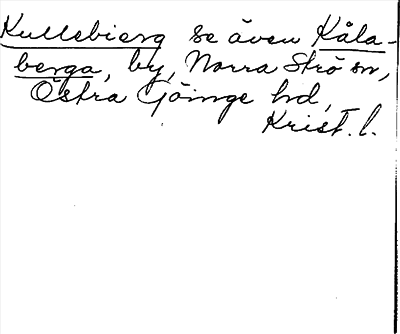 Kullebierg se även Kåla-
berga, by, Norra Strö sn,
Östra Göinge hd,
Krist. l.